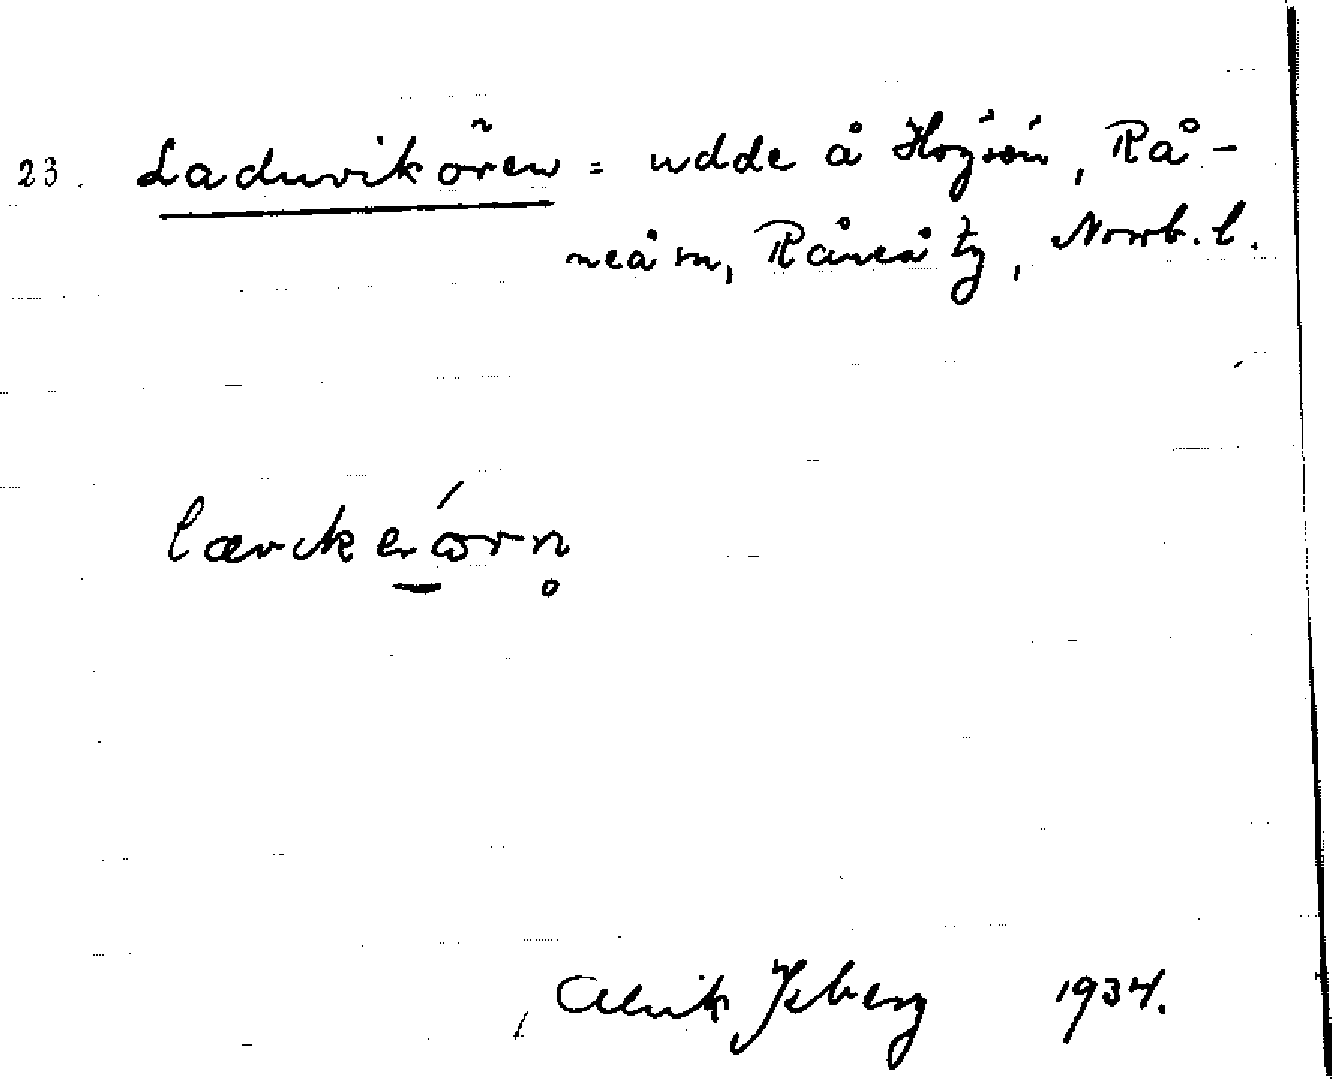 23. Laduvikören = udde å Högsön, Rå-
neå sn, Råneå tg, Norrb. l.
Ulrik Isberg 1934.